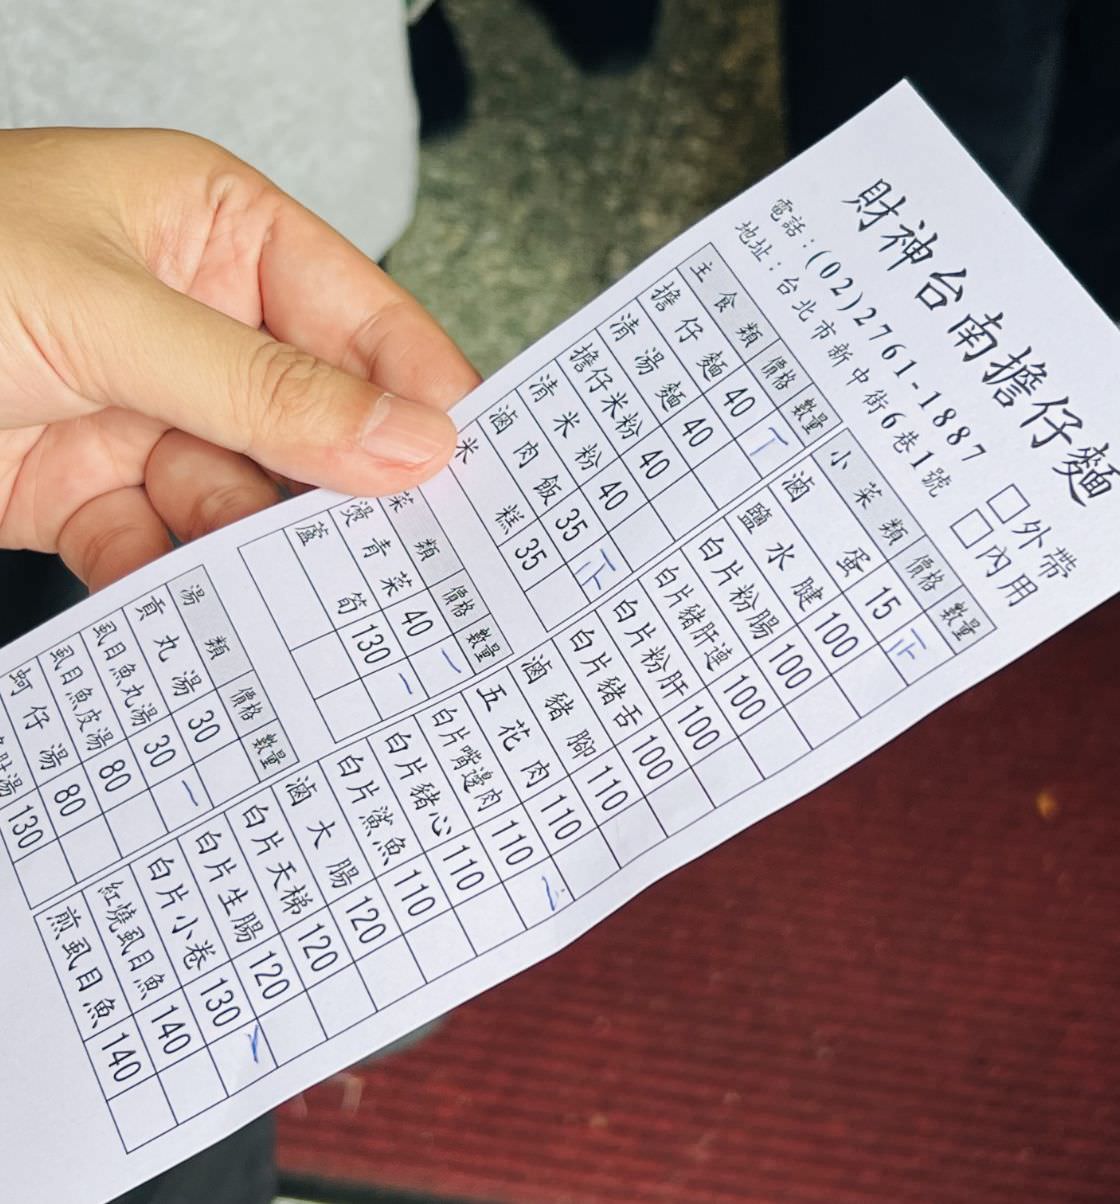 財神台南擔仔麵
電話：(02)2761-1887
地址：台北市新中街6巷1號
□外帶
□內用
主食類 價格 數量
擔仔麵 40 丅
清湯麵 40
擔仔米粉 40
清米粉 40
滷肉飯 35
米糕 35
菜類 價格 數量
燙青菜 40 一
蘆筍 130 一
湯類 價格 數量
貢丸湯 30
虱目魚丸湯 30 一
虱目魚皮湯 80
蚵仔湯 80
魚肚湯 130
小菜類 價格 數量
滷蛋 15
鹽水腱 100
白片粉腸 100
白片豬肝連 100
白片粉肝 100
白片豬舌 100
滷豬腳 110
五花肉 110
白片嘴邊肉 110
白片豬心 110
白片鯊魚 110
滷大腸 120
白片天梯 120
白片生腸 120
白片小卷 130 一
紅燒虱目魚 140
煎虱目魚 140